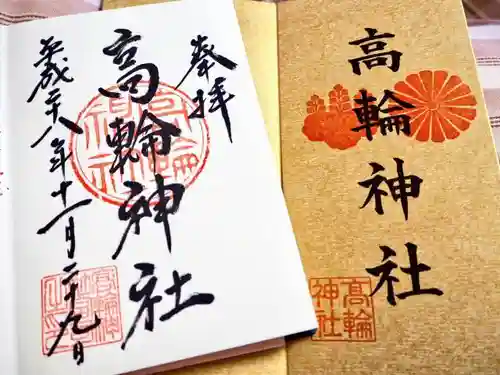 奉拝
高輪神社
平成二十八年十一月二十九日
高輪神社
高輪神社
高輪神社